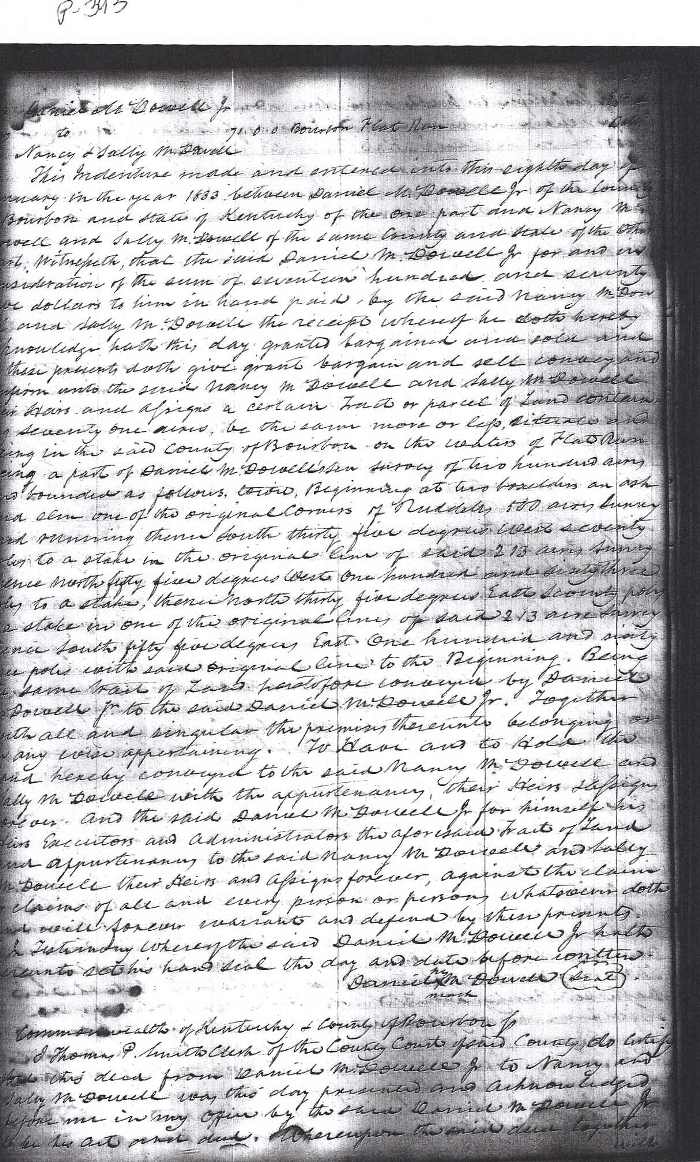 P. 313
Daniel McDowell Jr
to 71.0.0 Bourbon Flat Run
Nancy & Sally McDowell
This Indenture made and entered into this eighth day of
nuary in the year 1833 between Daniel McDowell Jr of the County
Bourbon and state of Kentucky of the one part and Nancy Mc
owell and Sally McDowell of the same County and State of the other
rt, Witnesseth, that the said Daniel McDowell Jr for and in
nsideration of the sum of seventeen hundred and seventy
ve dollars to him in hand paid, by the said Nancy McDow
and Sally McDowell the receipt whereof he doth hereby
knowledge hath this day granted bargained and sold and
these presents doth give grant bargain and sell convey and
unto the said Nancy McDowell and Sally McDowell
ir Heirs and Assigns a certain Tract or parcel of Land contain
seventy one acres, be the same more or less, situate and
ing in the said County of Bourbon on the waters of Flat Run
eing a part of Daniel McDowells survey of two hundred acres
bounded as follows, towit, Beginning at two an ash
nd elm one of the original corners of Ruddels 500 acres survey
nd running thence South thirty five degrees West seventy
les to a stake in the original line of said 213 acres survey
ence North fifty five degrees West One hundred and sixty three
les to a stake, thence North thirty five degrees East Seventy poles
a stake in one of the original lines of said 213 acre survey
ence South fifty five degrees East One hundred and sixty
ee poles with said original line to the Beginning. Being
e same tract of Land heretofore conveyed by Daniel
Dowell to the said Daniel McDowell Jr. Together
with all and singular the premises thereunto belonging or
any wise appertaining. To Have and to Hold the
and hereby conveyed to the said Nancy McDowell and
ally McDowell with the appurtenances, their Heirs & Assigns
orever. And the said Daniel McDowell Jr for himself his
eirs Executors and Administrators the aforesaid Tract of Land
nd appurtenances to the said Nancy McDowell and Sally
McDowell their Heirs and Assigns forever, against the claim
claims of all and every person or persons whatsoever doth
nd will forever warrant and defend by these presents.
In Testimony whereof the said Daniel McDowell Jr hath
ereunto set his hand seal the day and date before written.
Daniel his McDowell Seal
mark
Commonwealth of Kentucky & County of Bourbon Ss
I Thomas P. Smith Clerk of the County Court of said County do certify
that this deed from Daniel McDowell Jr to Nancy and
Sally McDowell was this day presented and acknowledged
before me in my office by the said Daniel McDowell Jr
to be his act and deed. Whereupon the said deed together
with